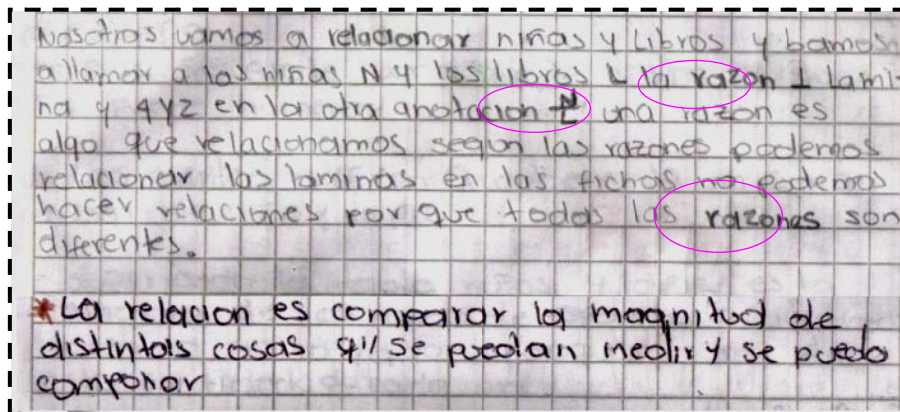 Nosotros vamos a relacionar niñas y Libros y bamos
a llamar a las niñas N y los libros L la razon 1 lami
na y 4 y 2 en la otra anotacion N/L una razon es
algo que relacionamos segun las razones podemos
relacionar las laminas en las fichas no podemos
hacer relaciones por que todas las razones son
diferentes.
*La relacion es comparar la magnitud de
distintas cosas q// se puedan medir y se puedo
componor